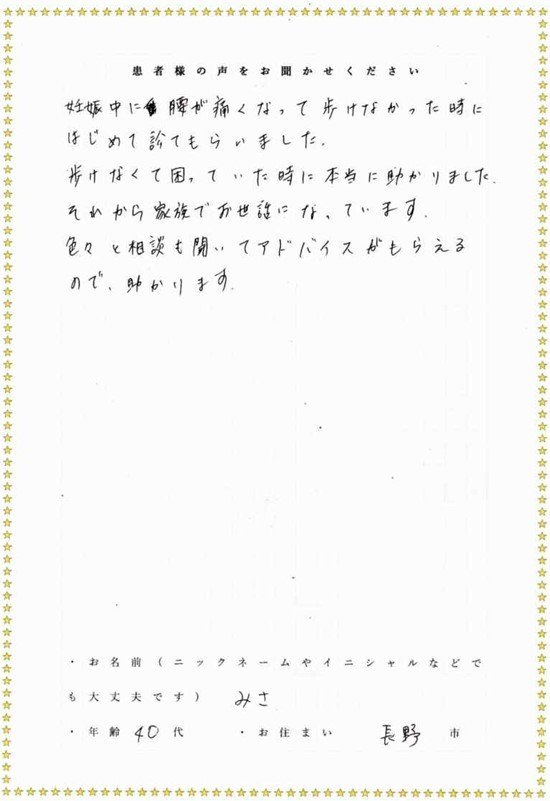 患者様の声をお聞かせください
妊娠中に腰が痛くなって歩けなかった時に
はじめて診てもらいました.
歩けなくて困っていた時に本当に助かりました.
それから家族でお世話になっています.
色々と相談も聞いてアドバイスがもらえる
ので、助かります.
・お名前(ニックネームやイニシャルなどで
も大丈夫です) みさ
・年齢 40代 ・お住まい 長野 市